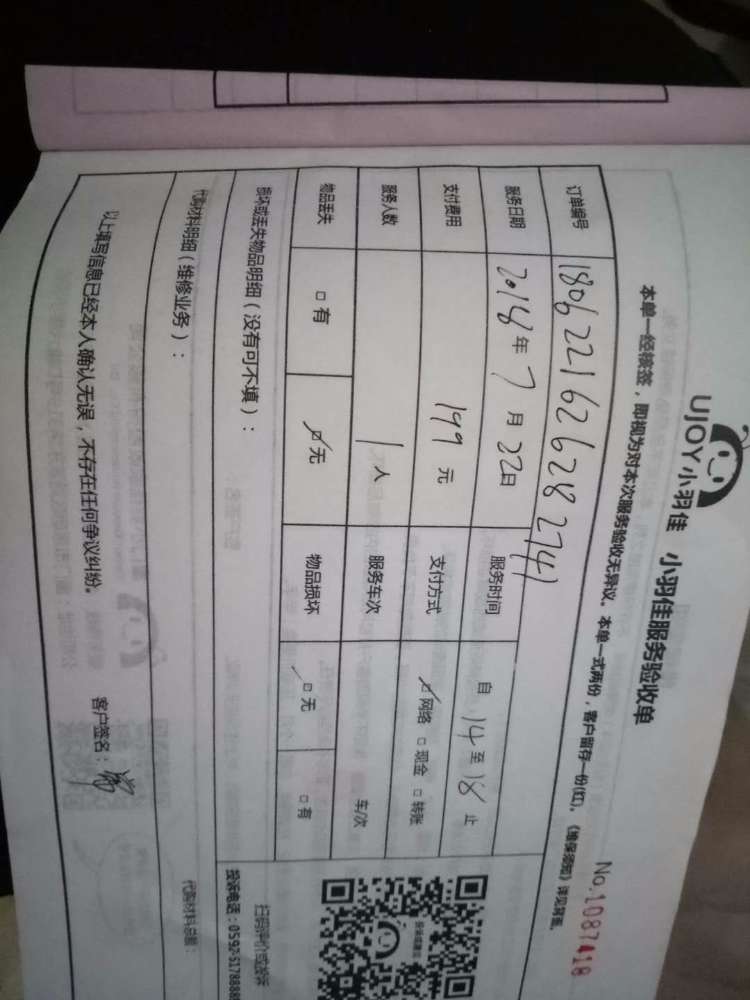 UJOY小羽佳 小羽佳服务验收单
No.1087418
本单一经核签，即视为对本次服务验收无异议。本单一式两份，客户留存一份(红)。《维保须知》详见背面。
订单编号 1806221626282741
服务日期 2018年7月22日 服务时间 自14至18止
支付费用 199元 支付方式 ☑网络 □现金 □转账
服务人数 1人 服务车次 车/次
物品丢失 □有 ☑无 物品损坏 ☑无 □有
损坏或丢失物品明细（没有可不填）：
扫码评价或投诉
投诉电话：0592-5178888
代购材料明细（维修业务）：
代购材料总额：
以上填写信息已经本人确认无误，不存在任何争议纠纷。
客户签名：